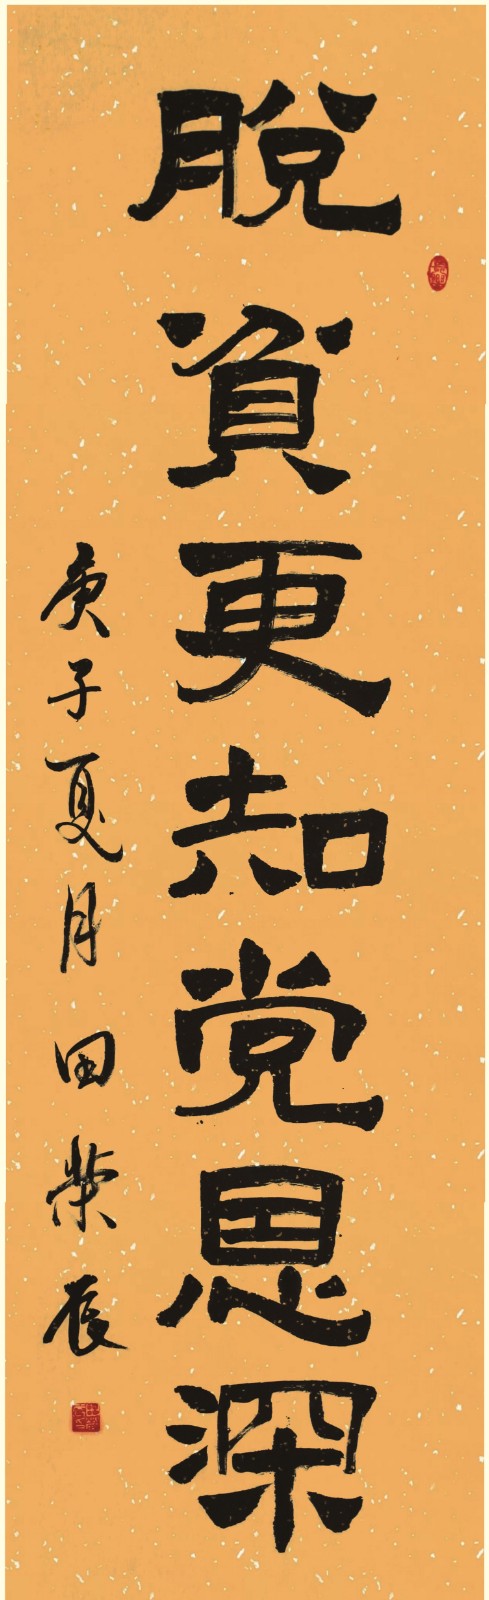 脱貧更知党恩深
庚子夏月田榮辰